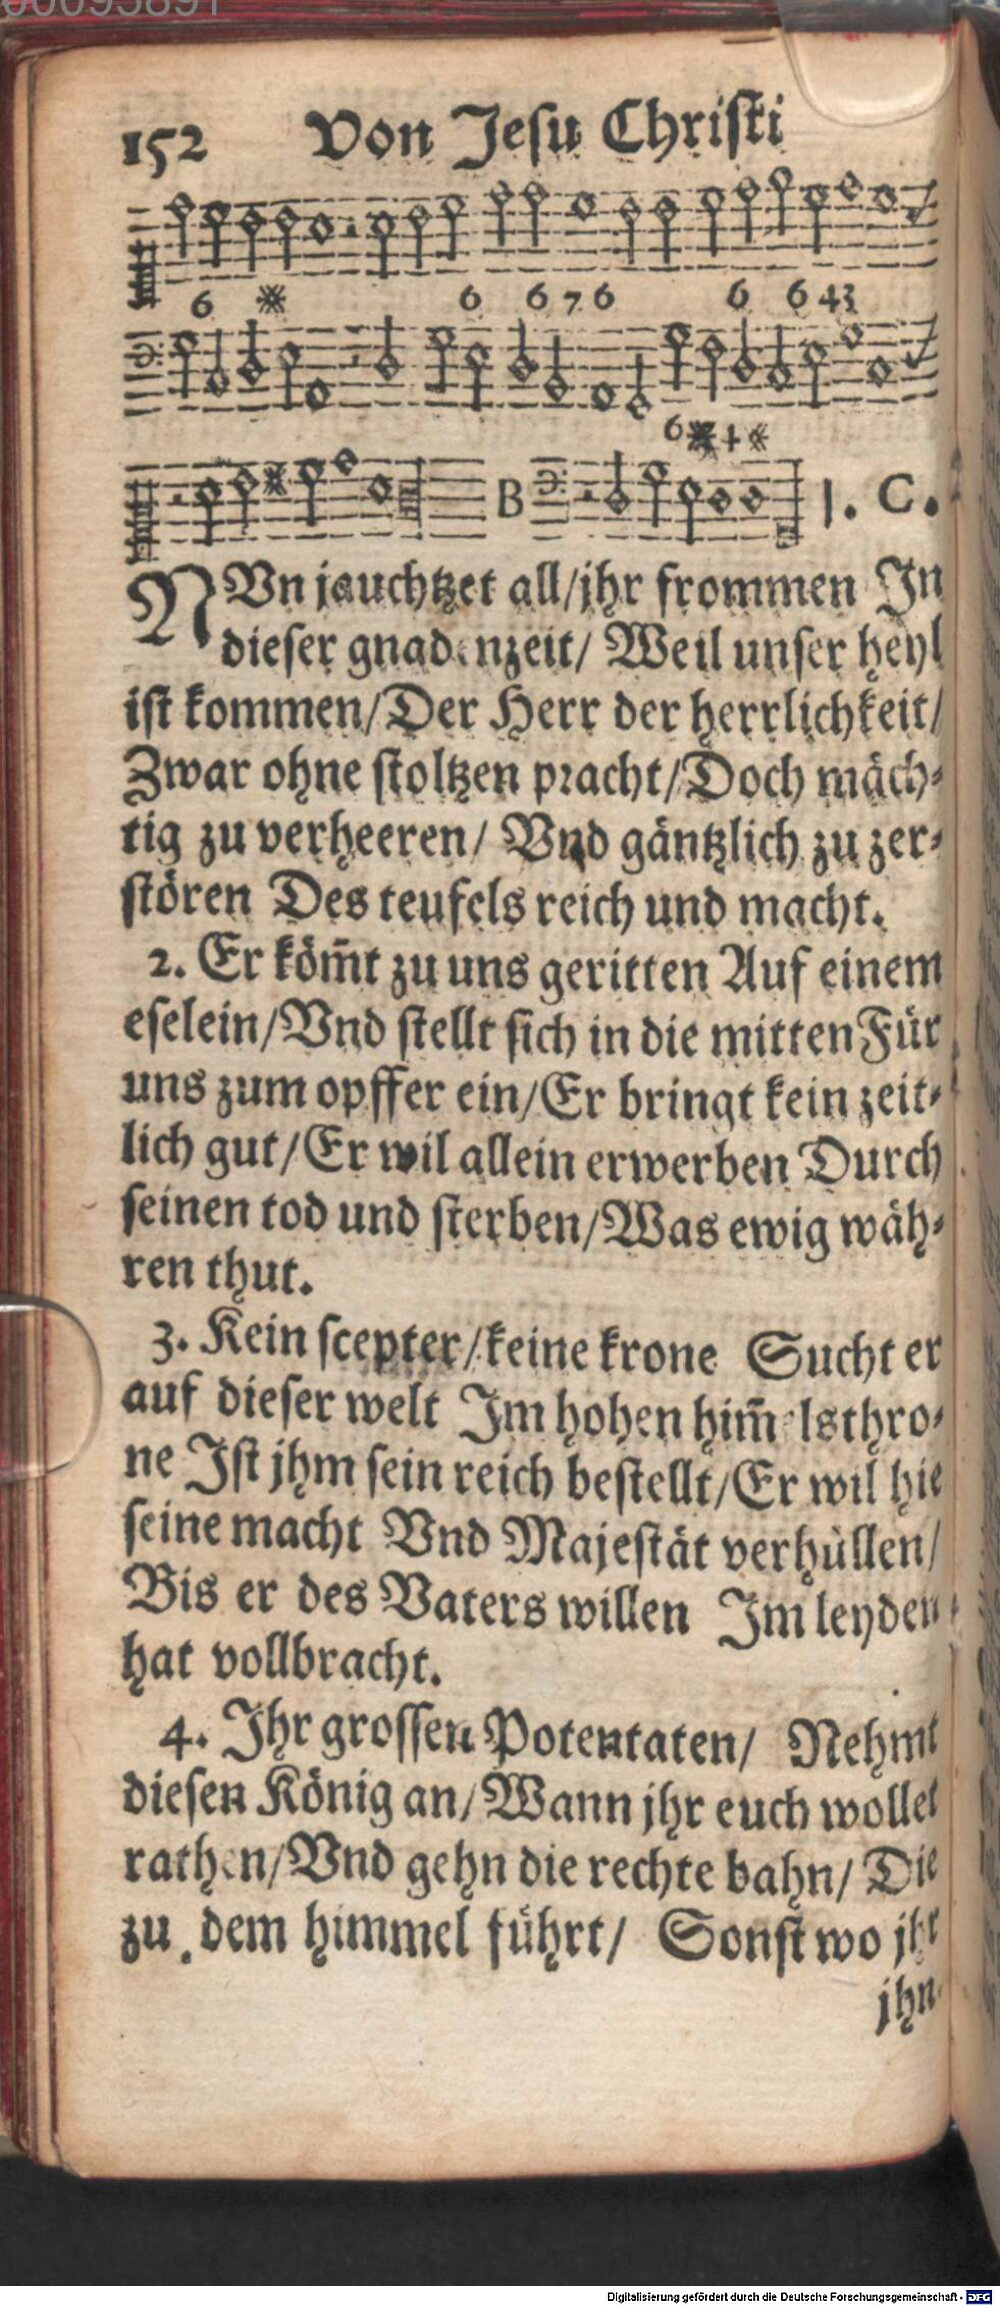 00095891
152 Von Jesu Christi
6 ※ 6 6 7 6 6 6 43
6 ※ ※
B J. C.
NVn jauchtzet all/jhr frommen Jn
dieser gnadenzeit/ Weil unser heyl
ist kommen/Der Herr der herrlichkeit/
Zwar ohne stoltzen pracht/Doch mäch-
tig zu verheeren/ Vnd gäntzlich zu zer-
stören Des teufels reich und macht.
2. Erköm̃t zu uns geritten Auf einem
eselein/Vnd stellt sich in die mitten Für
uns zum opffer ein/Er bringt kein zeit-
lich gut/Er wil allein erwerben Durch
seinen tod und sterben/Was ewig wäh-
ren thut.
3. Kein scepter/keine krone Sucht er
auf dieser welt Jm hohen him̃elsthro-
ne Jst jhm sein reich bestellt/Er wil hie
seine macht Vnd Majestät verhüllen/
Bis er des Vaters willen Jm leyden
hat vollbracht.
4. Jhr grossen Potentaten/ Nehmt
diesen König an/Wann jhr euch wollet
rathen/Vnd gehn die rechte bahn/ Die
zu dem himmel führt/ Sonst wo jhr
jhn
Digitalisierung gefördert durch die Deutsche Forschungsgemeinschaft - DFG